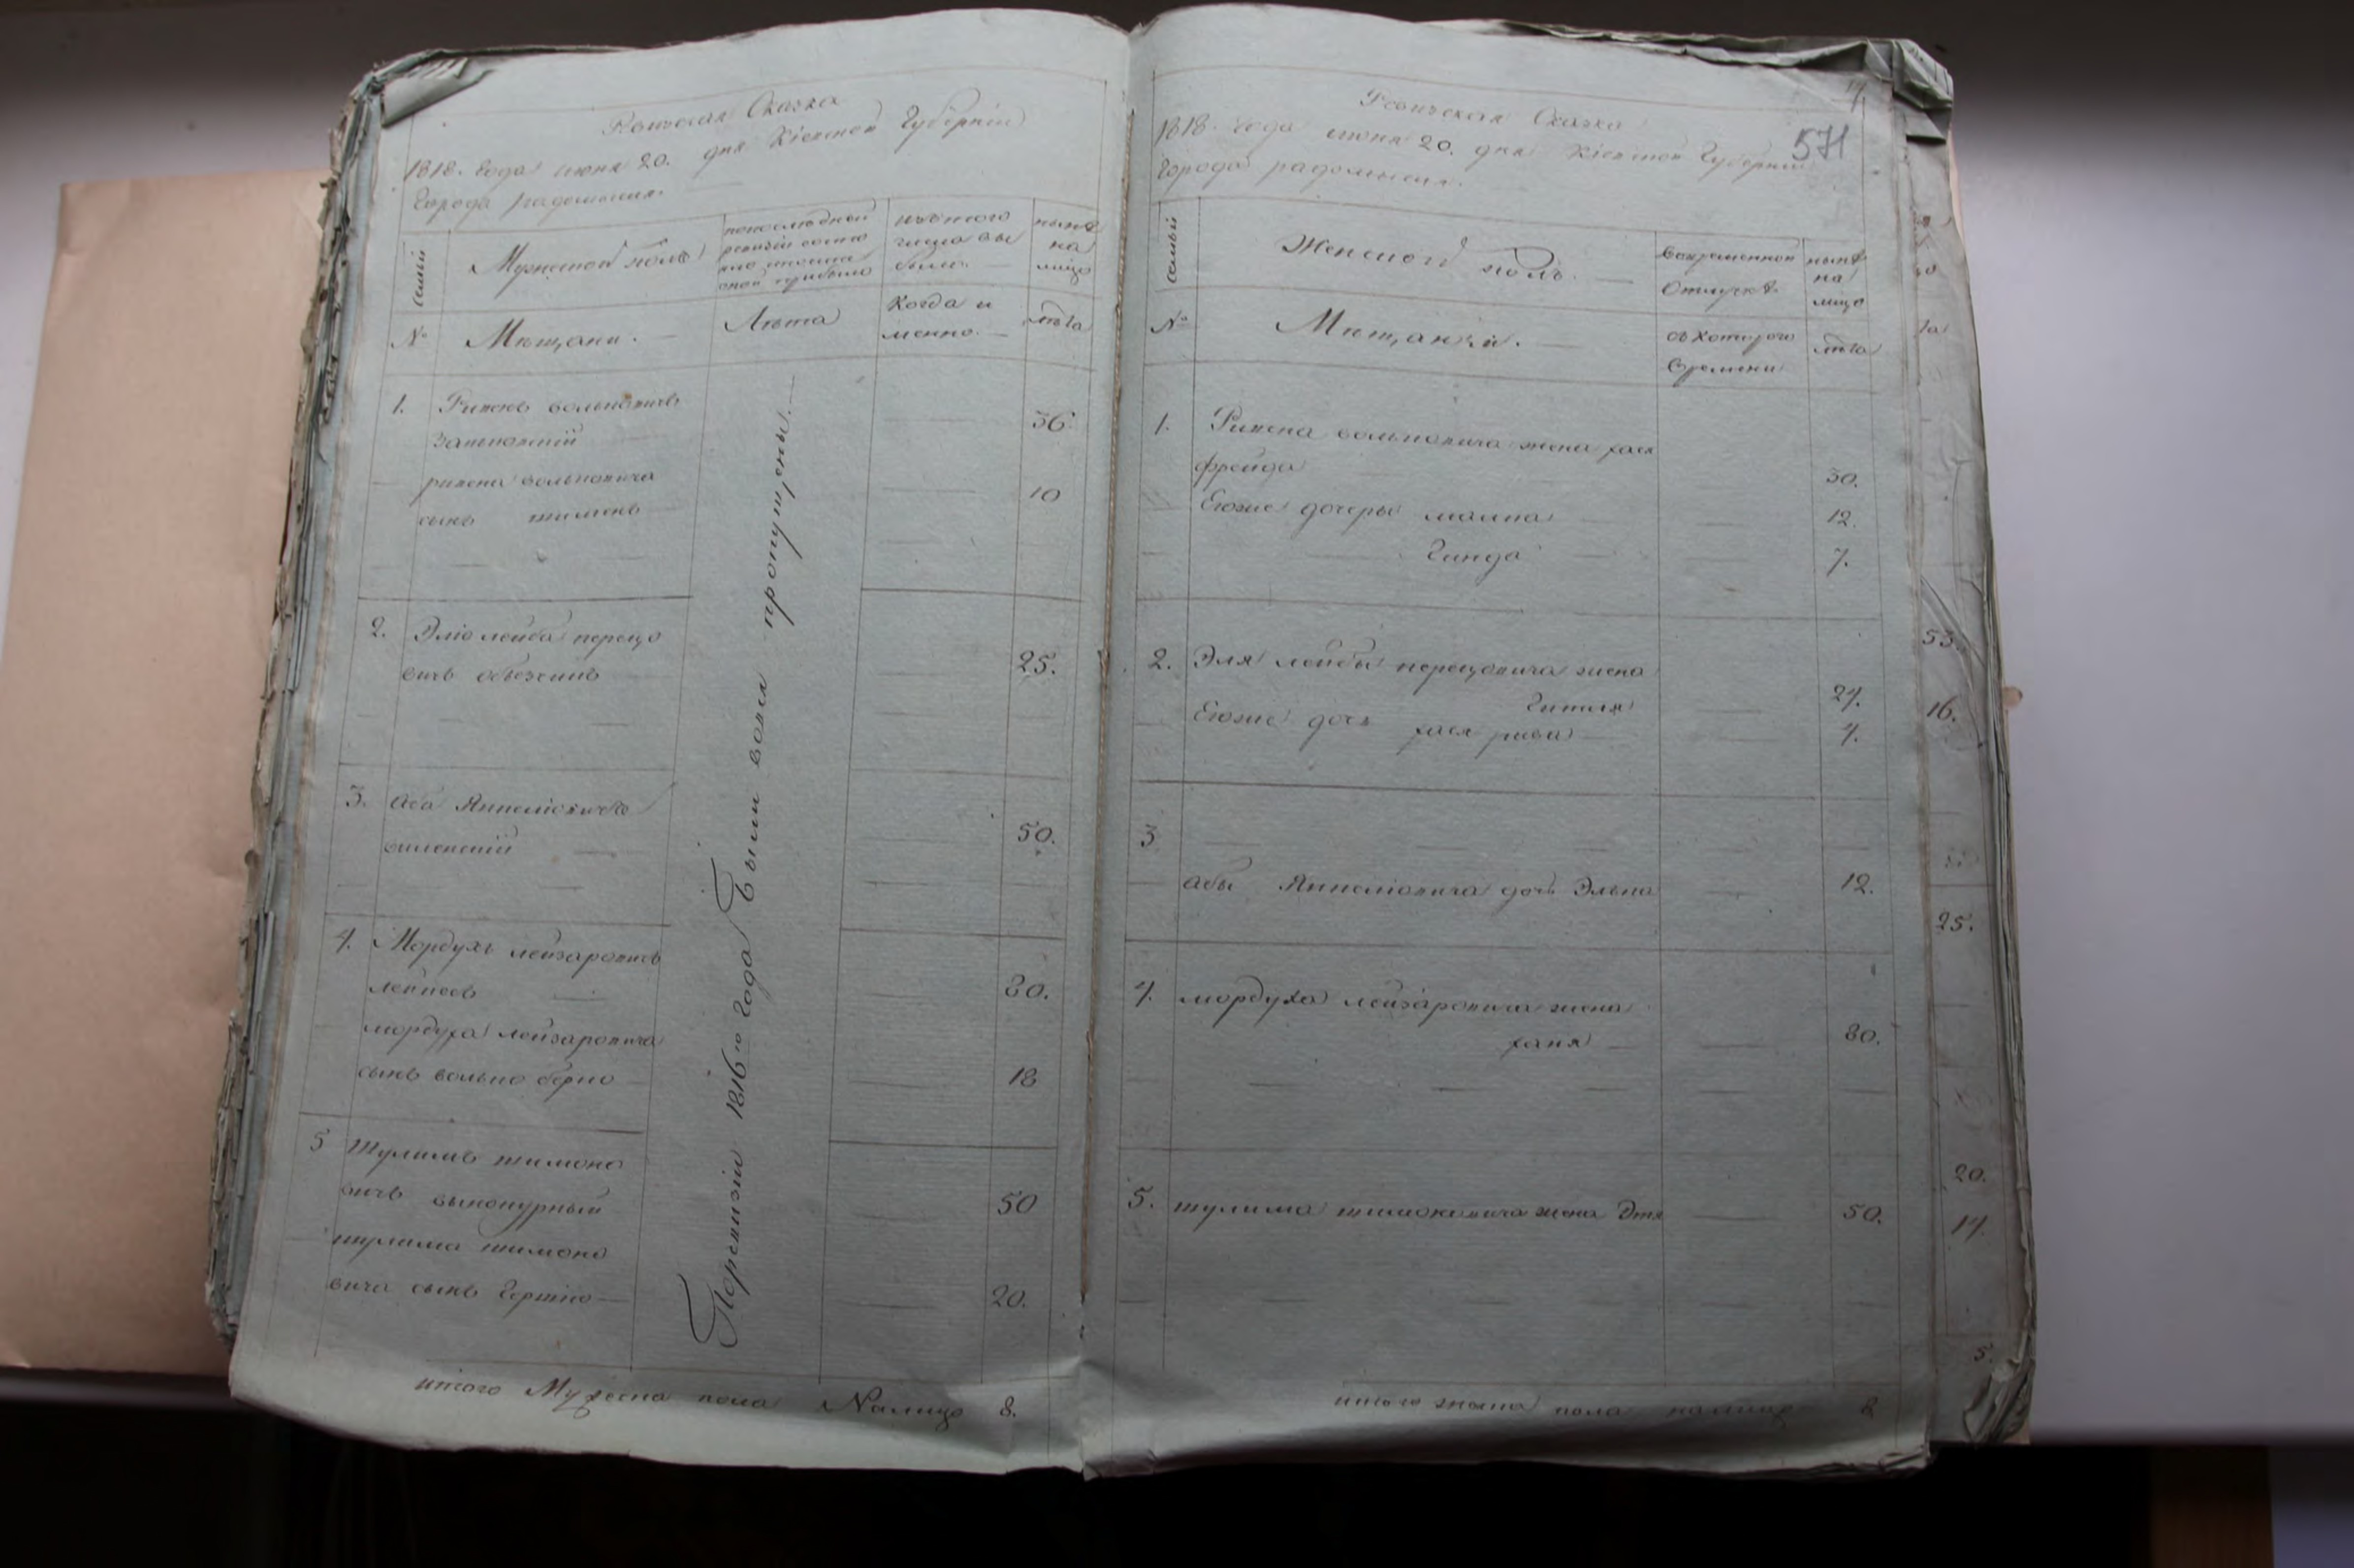 Ревизская Сказка
1818. года июня 20. дня Кіевской Губерніи
Города радомысля.
семьи
Мужеской полъ
по последней
ревизіи состо
яло и после
оной прибыло
изъ того
числа вы
было.
ныне
на
лицо
№
Мещане.
Лета
Когда и
менно.
лета
1. Рипснъ вольковичъ
36
вольковича
10
сынъ шимонъ
2. Эліо лейба перецо
вичъ
25.
3. Аба Янкеліовичъ
виленскій
50.
4. Мордухъ лейзаровичъ
30.
мордуха лейзаровича
сынъ волько берко
18
5 шулимъ шимоно
вичъ винокурный
50
шулима шимоно
вича сынъ Гершко
20.
По ревизіи 1816го года были вовся пропущены.
итого Мужеска пола Налицо 8.
571
Ревизская Сказка
1818. года июня 20. дня Кіевской Губерніи
Города радомысля.
семьи
Женской полъ.
Вовременной
Отлучке
ныне
на
лицо
№
Мещанки.
съ которого
времени
лета
1. вольковича жена хася
фрейда
30.
Егоже дочеры малка
12.
Гинда
7.
2. Эля лейбы перецовича жена
Гитля
24.
Егоже дочь хася рива
4.
3
абы Янкеліовича дочь Элька
12.
4. мордуха лейзаровича жена
хана
30.
5. шулима шимоновича жена Этя
50.
итого женска пола налицо 8
53.
16.
25.
20.
14.
5.